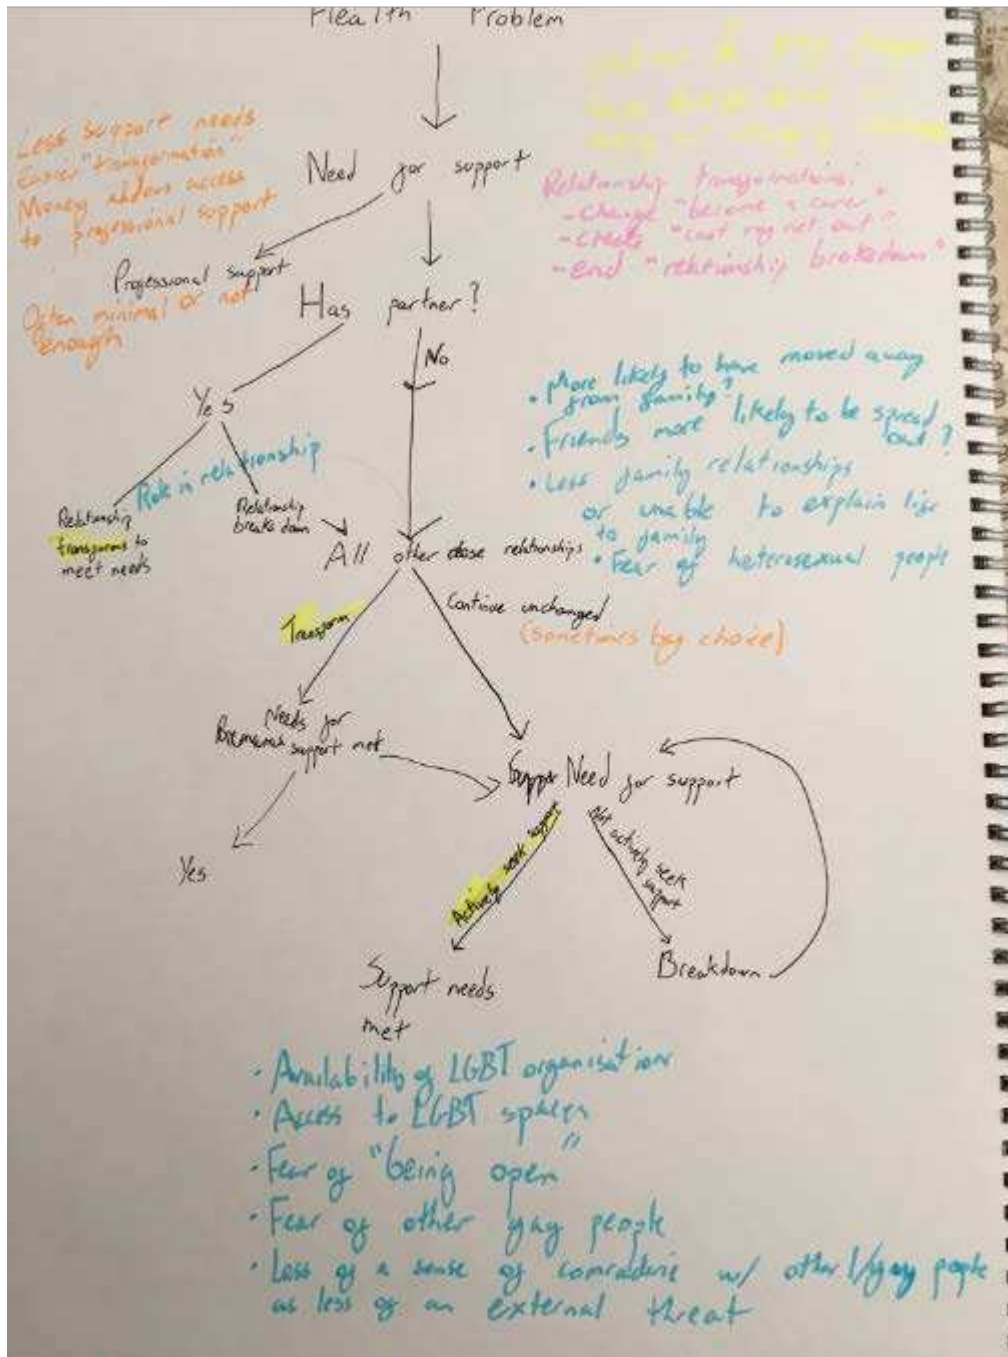 Health Problem
Less support needs
Easier "transformation"
Money allows access
to professional support
Need for support
Relationship transformations:
- Change "become a carer"
- Create "cast my net out"
- end "relationship breakdown"
Professional support
Often minimal or not
enough
Has partner?
No
Yes
• More likely to have moved away
from family?
• Friends more likely to be spread
out?
• Less family relationships
or unable to explain life
to family
• Fear of heterosexual people
Role in relationship
Relationship
transforms to
meet needs
Relationship
breakdown
All other close relationships
Transform
Continue unchanged
(sometimes by choice)
Needs for
support met
Need for support
Yes
Actively seek support
Not actively seek
support
Support needs
met
Breakdown
• Availability of LGBT organisation
• Access to LGBT spaces
• Fear of "being open"
• Fear of other gay people
• Loss of a sense of comraderie w/ other l/gay people
as less of an external threat